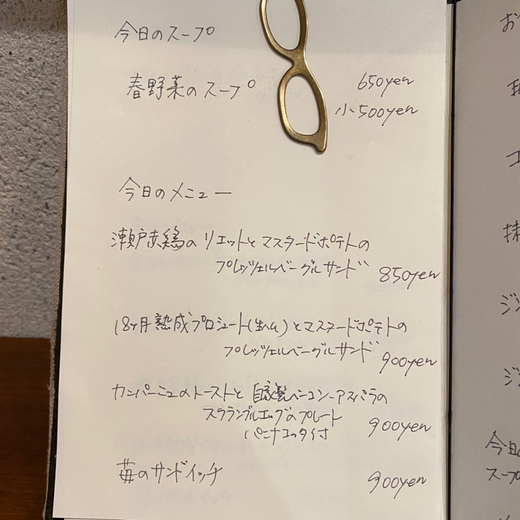 今日のスープ
春野菜のスープ 650yen
小500yen
今日のメニュー
瀬戸赤鶏のリエットとマスタードポテトの
プレッツェルベーグルサンド 850yen
18ヶ月熟成プロシュート(生ハム)とマスタードポテトの
プレッツェルベーグルサンド 900yen
カンパーニュのトーストと自家製ベーコン・アスパラの
スクランブルエッグのプレート
パンナコッタ付 900yen
苺のサンドイッチ 900yen
お
コ
抹
ジン
ジ
今日の
スープ